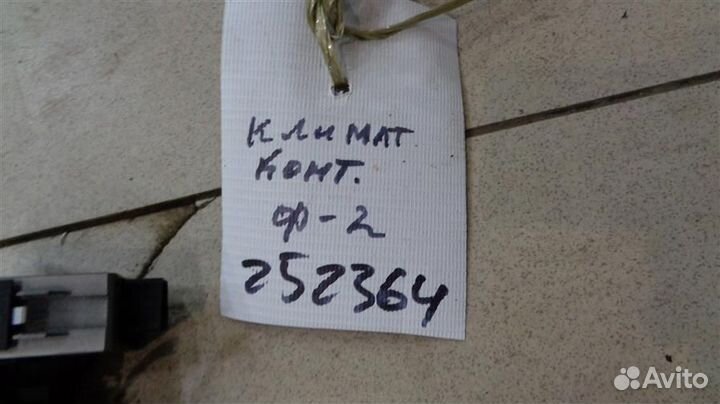 Климат
Конт.
Ф-2
252364
Avito